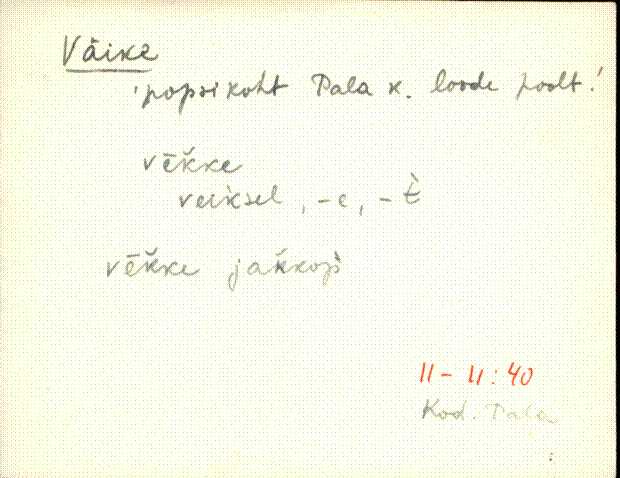 Väike
'popsikoht Pala k. loode poolt.'
vēk̆ke
veiksel, -e, -t̀
vēk̆ke jak̆kop̀
11-11:40
Kod. Pala